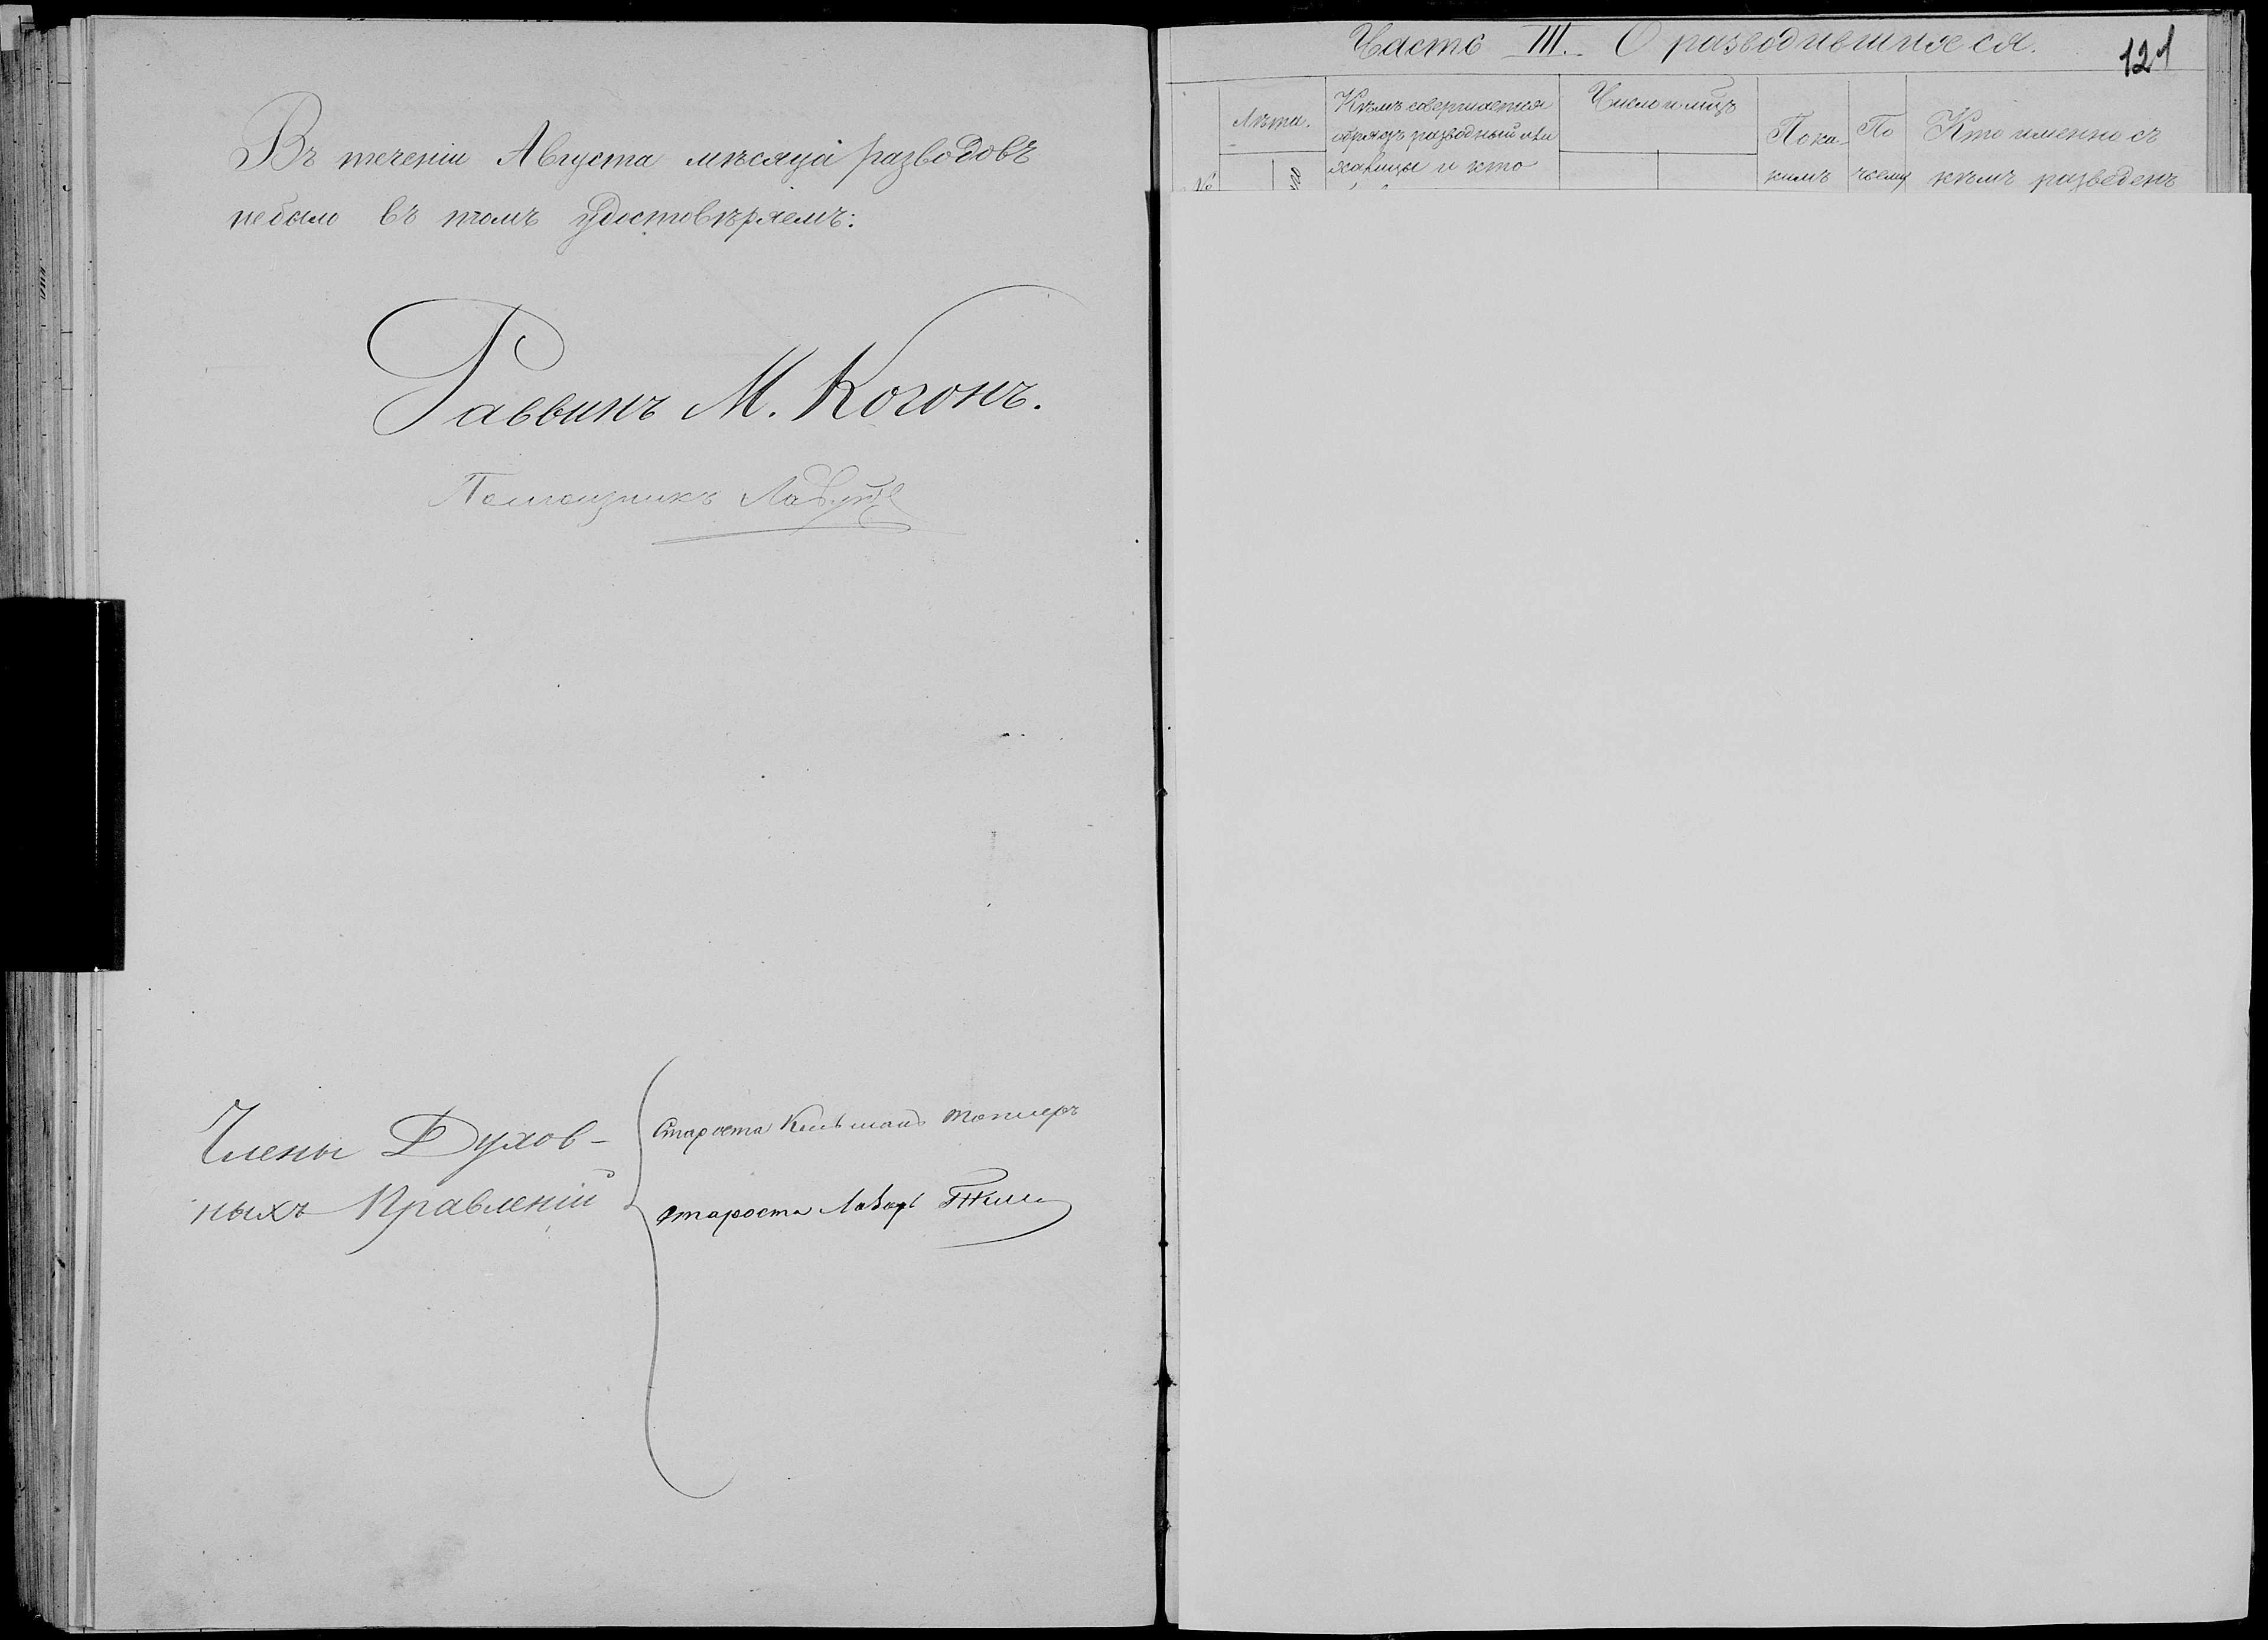 Въ теченіи Августа мѣсяца разводовъ
небыло въ томъ удостовѣряемъ:
Раввинъ М. Когонъ.
Помощникъ
Члены Духов-
ныхъ Правленій
Староста Кельманъ
Староста Лазарь
Часть III. О разводившихся.
121
№
Лѣта.
Кѣмъ совершается
обрядъ разводный или
халицы и кто
Число и мѣц
По ка-
кимъ
По
чьему
Кто именно съ
кѣмъ разведенъ